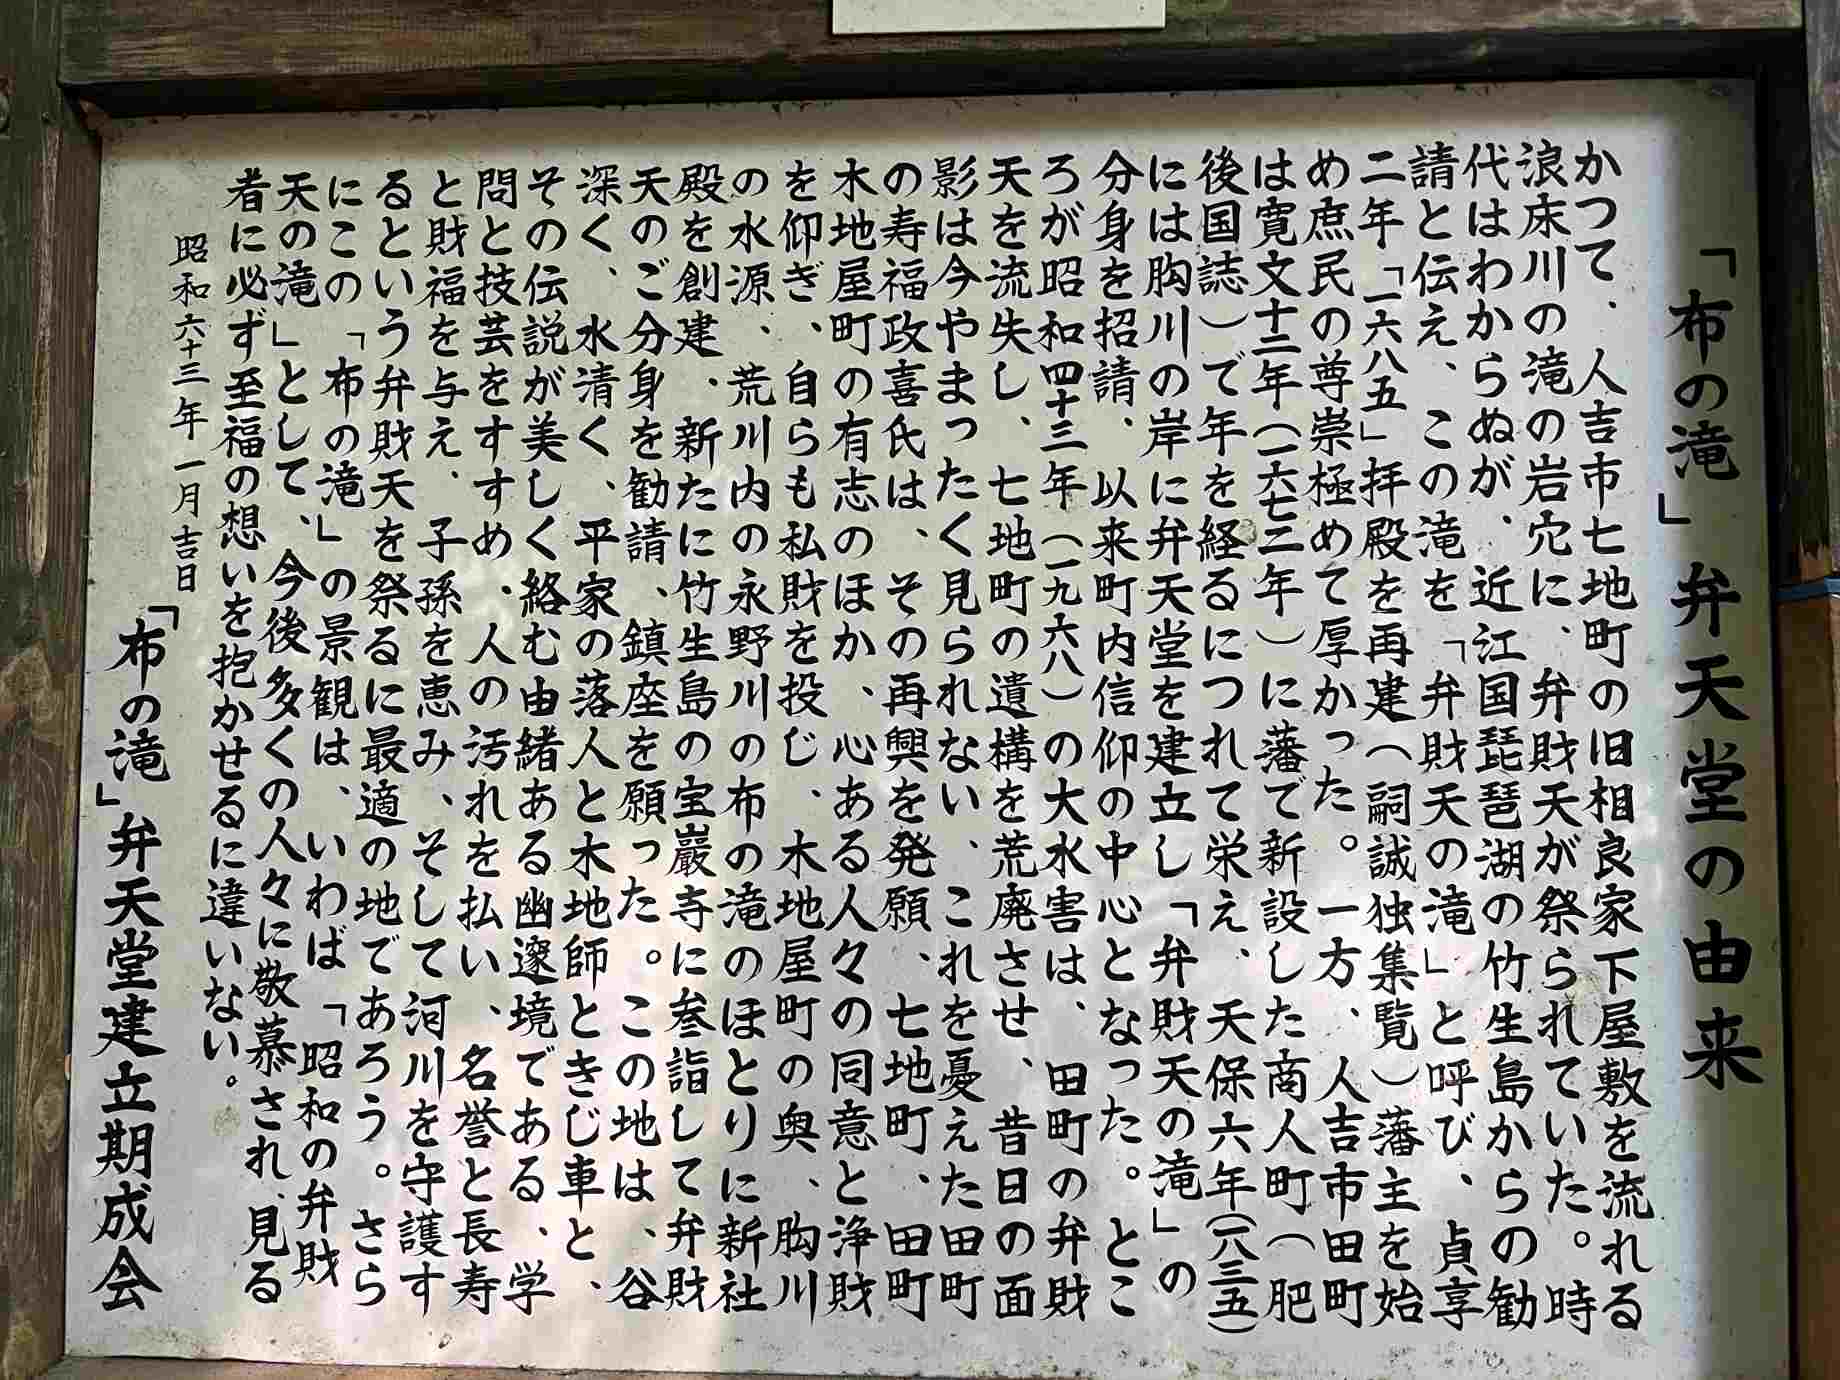 「布の滝」弁天堂の由来
かつて、人吉市七地町の旧相良家下屋敷を流れる
浪床川の滝の岩穴に、弁財天が祭られていた。時
代はわからぬが、近江国琵琶湖の竹生島からの勧
請と伝え、この滝を「弁財天の滝」と呼び、貞享
二年「一六八五」拝殿を再建（嗣誠独集覧）藩主を始
め庶民の尊崇極めて厚かった。一方、人吉市田町
は寛文十二年（一六七二年）に藩で新設した商人町（肥
後国誌）で年を経るにつれて栄え、天保六年（一八三五）
には胸川の岸に弁天堂を建立し「弁財天の滝」の
分身を招請、以来町内信仰の中心となった。とこ
ろが昭和四十三年（一九六八）の大水害は、田町の弁財
天を流失し、七地町の遺構を荒廃させ、昔日の面
影は今やまったく見られない、これを憂えた田町
の寿福政喜氏は、その再興を発願、七地町、田町
木地屋町の有志のほか、心ある人々の同意と浄財
を仰ぎ、自らも私財を投じ、木地屋町の奥、胸川
の水源、荒川内の永野川の布の滝のほとりに新社
殿を創建、新たに竹生島の宝巖寺に参詣して弁財
天のご分身を勧請、鎮座を願った。この地は、谷
深く、水清く、平家の落人と木地師ときじ車と、
その伝説が美しく絡む由緒ある幽邃境である、学
問と技芸をすすめ、人の汚れを払い、名誉と長寿
と財福を与え、子孫を恵み、そして河川を守護す
るという弁財天を祭るに最適の地であろう。さら
にこの「布の滝」の景観は、いわば「昭和の弁財
天の滝」として、今後多くの人々に敬慕され、見る
者に必ず至福の想いを抱かせるに違いない。
昭和六十三年一月吉日
「布の滝」弁天堂建立期成会